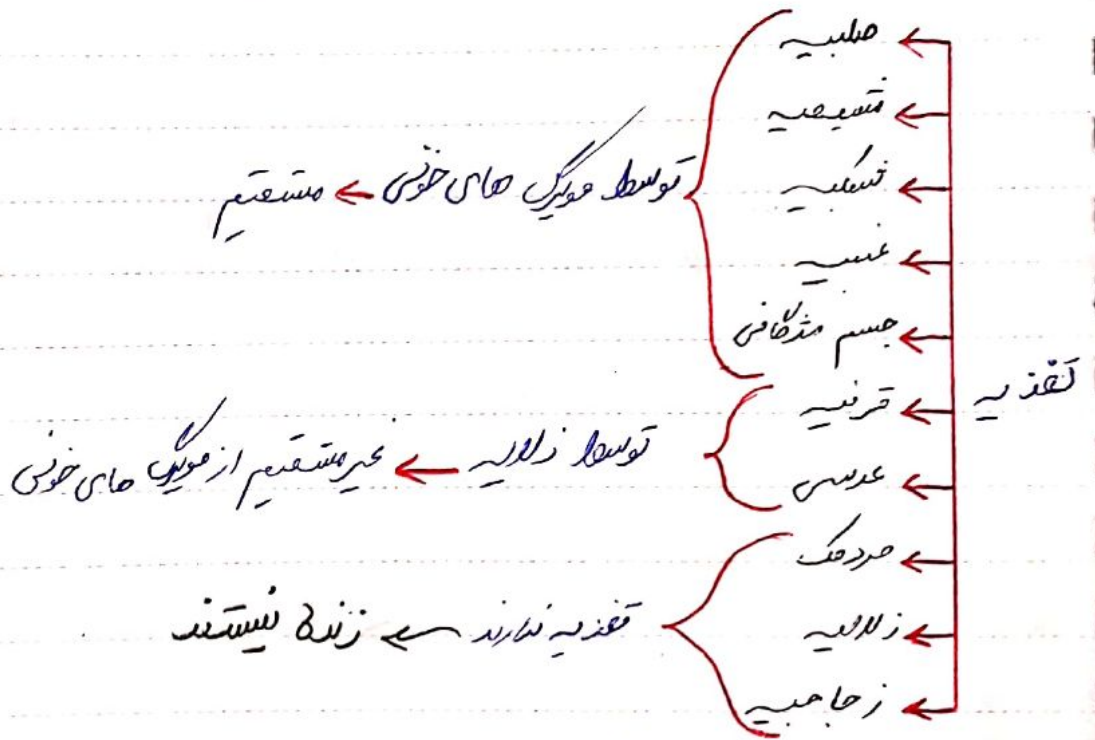 تغذیه
صلبیه
مشیمیه
شبکیه
عنبیه
جسم مژگانی
توسط مویرگ های خونی ← مستقیم
قرنیه
عدسی
توسط زلالیه ← غیر مستقیم از مویرگ های خونی
مردمک
زلالیه
زجاجیه
تغذیه ندارند ← زنده نیستند